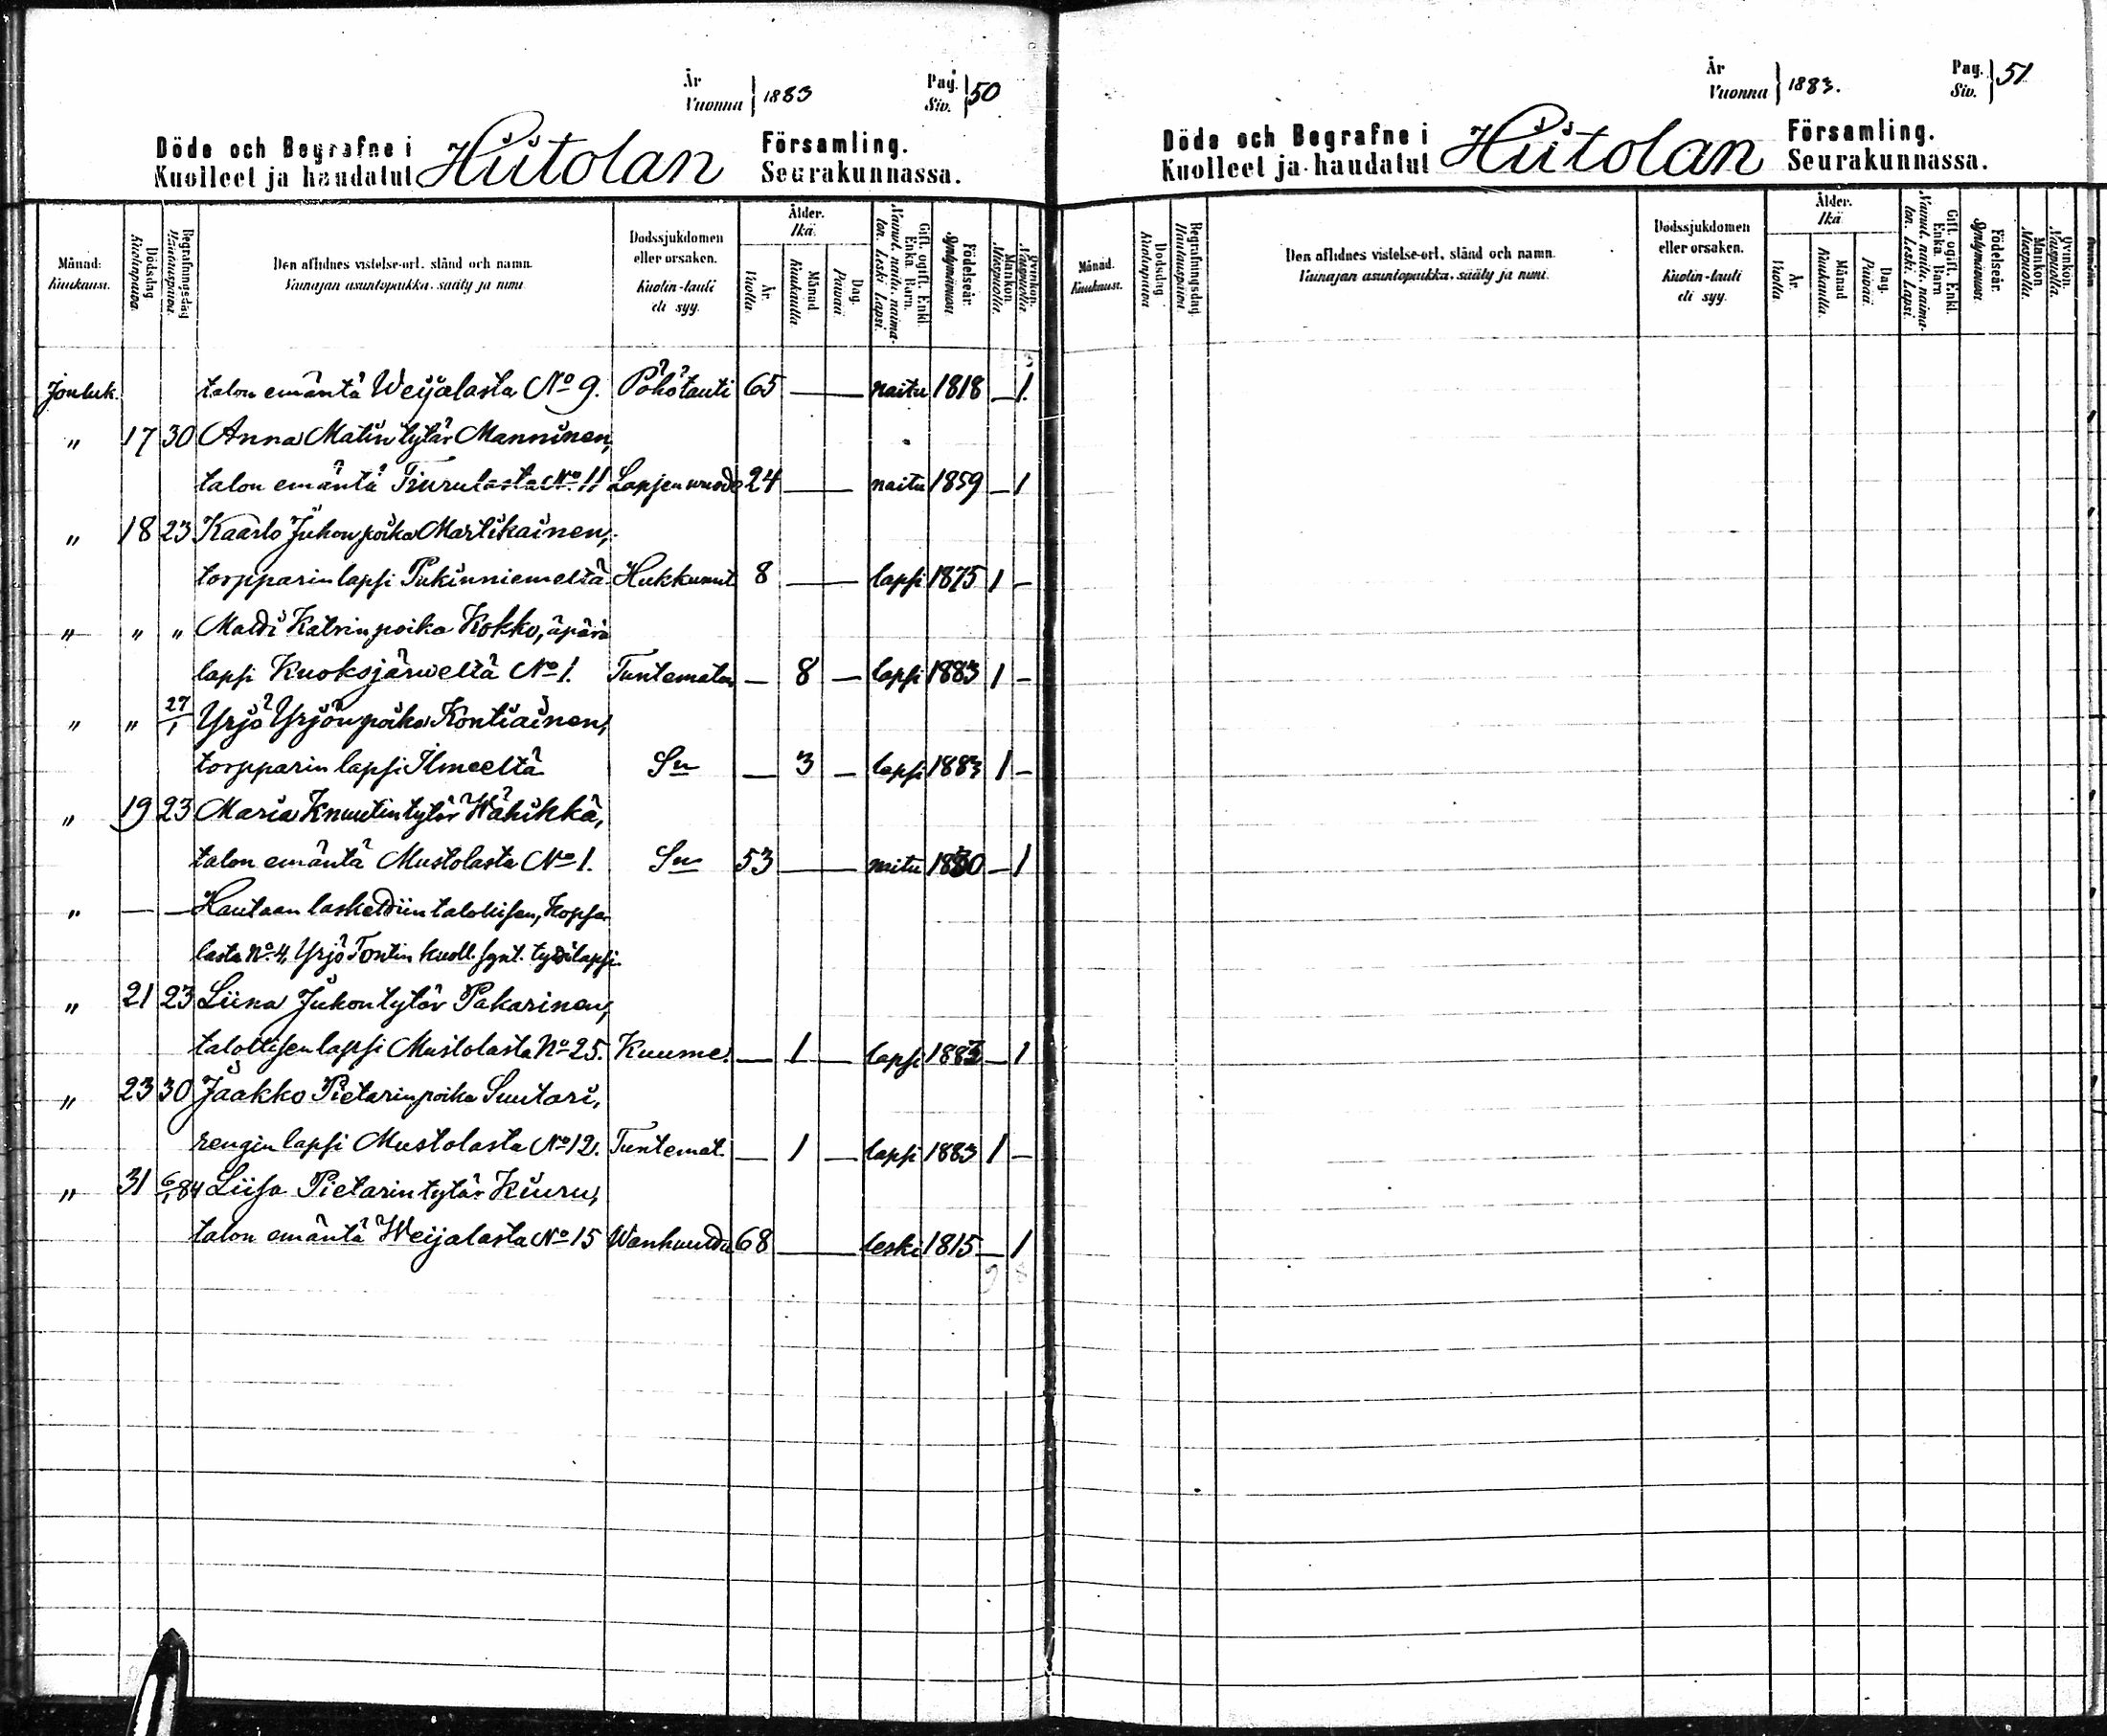 År
Vuonna } 1883
Pag.
Siv. } 50
Döde och Begrafne i
Kuolleet ja haudatut Hiitolan Församling.
Seurakunnassa.
Månad.
Kuukausi.
Dödsdag
Kuolinpäivä.
Begrafningsdag
Hautauspäivä.
Den aflidnes vistelse-ort, stånd och namn.
Vainajan asuntopaikka, sääty ja nimi.
Dödssjukdomen
eller orsaken.
Kuolin-tauti
eli syy.
Ålder.
Ikä.
År.
Vuotta.
Månad
Kuukautta.
Dag.
Päivää.
Gift. ogift. Enkl.
Enka. Barn.
Nainut. naitu. naima-
ton. Leski. Lapsi.
Födelseår.
Syntymävuosi.
Mankön.
Miespuolia.
Qvinkön.
Vaispuolia.
Jouluk. talon emäntä Weijalasta No 9. Pöhötauti 65 — — naitu 1818 — 1.
" 17 30 Anna Matin tytär Manninen,
talon emäntä Tiurulasta No 11 Lapsenvuode 24 — — naitu 1859 — 1
" 18 23 Kaarlo Juhon poika Martikainen,
torpparin lapsi Pukinniemeltä Hukkunut 8 — — lapsi 1875 1 —
" " " Matti Katrin poika Kokko, äpärä
lapsi Kuoksjärweltä No 1. Tuntematon — 8 — lapsi 1883 1 —
" " 27/1 Yrjö Yrjön poika Kontiainen,
torpparin lapsi Ilmeeltä Sn — 3 — lapsi 1883 1 —
" 19 23 Maria Knuutin tytär Wähikkä,
talon emäntä Mustolasta No 1. Sn 53 — — naitu 1830 — 1
" — — Hautaan laskettiin talollisen, Kopsa-
lasta No 4, Yrjö Tontin kuoll. synt. tyttölapsi.
" 21 23 Liina Juhon tytär Pakarinen,
talollisen lapsi Mustolasta No 25. Kuume. — 1 — lapsi 1883 — 1
" 23 30 Jaakko Pietarin poika Suutari,
rengin lapsi Mustolasta No 12. Tuntemat. — 1 — lapsi 1883 1 —
" 31 6/1 84 Liisa Pietarin tytär Kiuru,
talon emäntä Weijalasta No 15 Wanhuutta 68 — — leski 1815 — 1
År
Vuonna } 1883.
Pag.
Siv. } 51
Döde och Begrafne i
Kuolleet ja haudatut Hiitolan Församling.
Seurakunnassa.
Månad.
Kuukausi.
Dödsdag
Kuolinpäivä
Begrafningsdag
Hautauspäivä.
Den aflidnes vistelse-ort, stånd och namn.
Vainajan asuntopaikka, sääty ja nimi.
Dödssjukdomen
eller orsaken.
Kuolin-tauti
eli syy.
Ålder.
Ikä
År.
Vuotta
Månad
Kuukautta.
Dag.
Päivää.
Gift. ogift. Enkl.
Enka. Barn
Nainut. naitu. naima-
ton. Leski. Lapsi.
Födelseår.
Syntymävuosi.
Mankön
Miespuolia.
Qvinkön.
Vaispuolia.